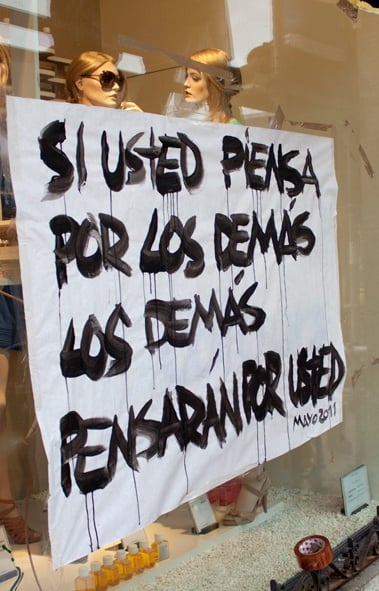 SI USTED PIENSA
POR LOS DEMÁS
LOS DEMÁS
PENSARÁN POR USTED
MAYO 2011